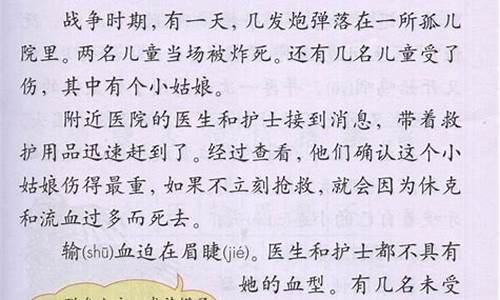 战争时期，有一天，几发炮弹落在一所孤儿
院里。两名儿童当场被炸死。还有几名儿童受了
伤，其中有个小姑娘。
附近医院的医生和护士接到消息，带着救
护用品迅速赶到了。经过查看，他们确认这个小
姑娘伤得最重，如果不立刻抢救，就会因为休克
和流血过多而死去。
输(shū)血迫在眉睫(jié)。医生和护士都不具有
她的血型。有几名未受